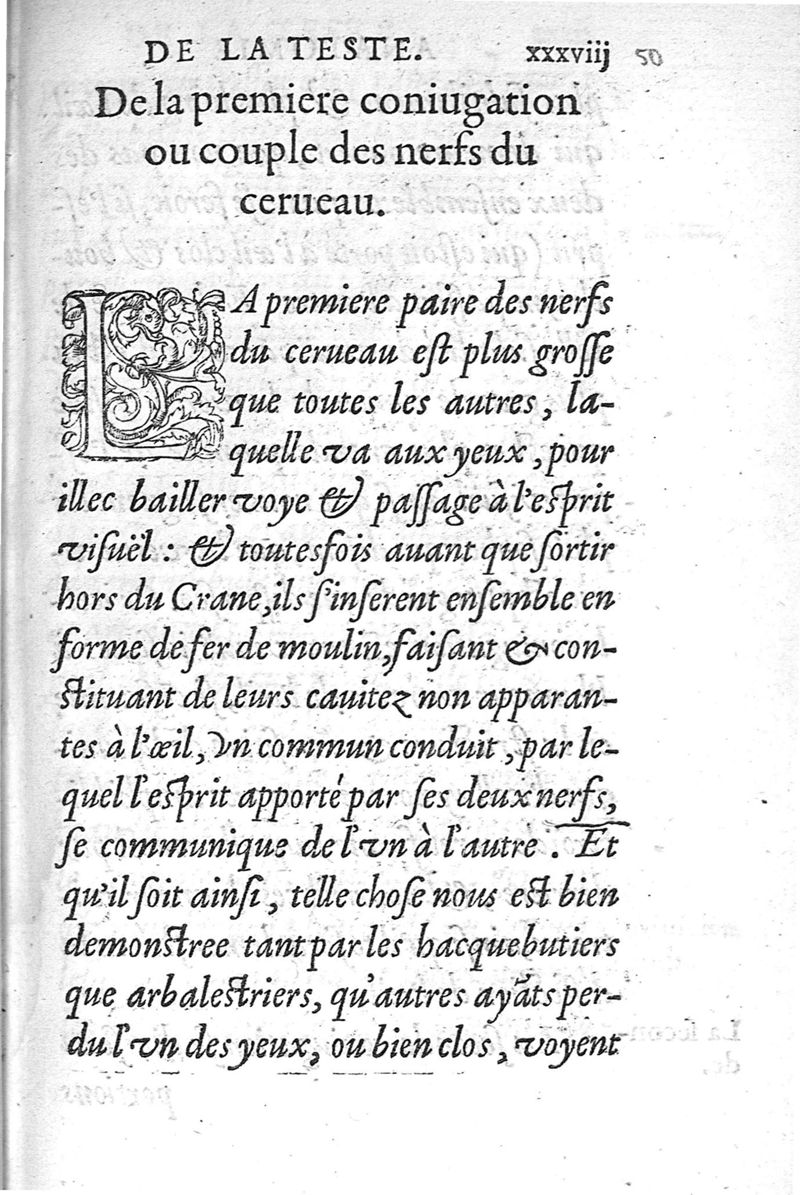 DE LA TESTE. xxxviij 50
De la premiere coniugation
ou couple des nerfs du
cerueau.
LA premiere paire des nerfs
du cerueau est plus grosse
que toutes les autres, la-
quelle va aux yeux, pour
illec bailler voye & passage à l'esprit
visuël : & toutesfois auant que sortir
hors du Crane, ils s'inserent ensemble en
forme de fer de moulin, faisant & con-
stituant de leurs cauitez non apparan-
tes à l'œil, vn commun conduit, par le-
quel l'esprit apporté par ses deux nerfs,
se communique de l'vn à l'autre. Et
qu'il soit ainsi, telle chose nous est bien
demonstree tant par les hacquebutiers
que arbalestriers, qu'autres ayãts per-
du l'vn des yeux, ou bien clos, voyent